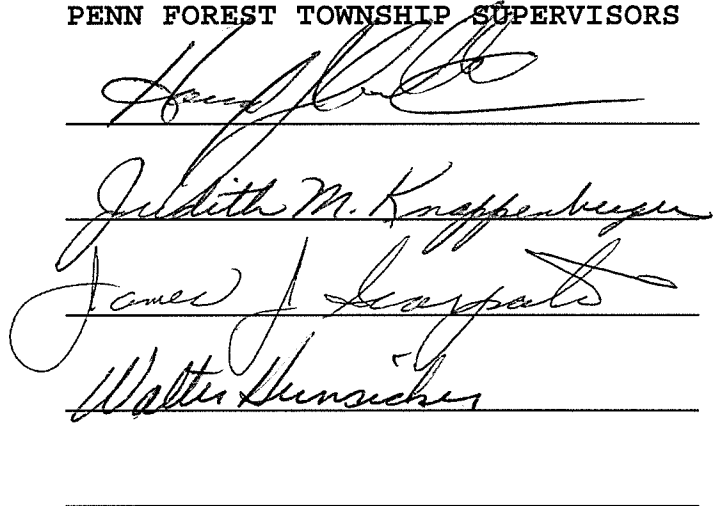 PENN FOREST TOWNSHIP SUPERVISORS
Judith M. Knappenberger
James J Scarpati
Walter Hunsicker